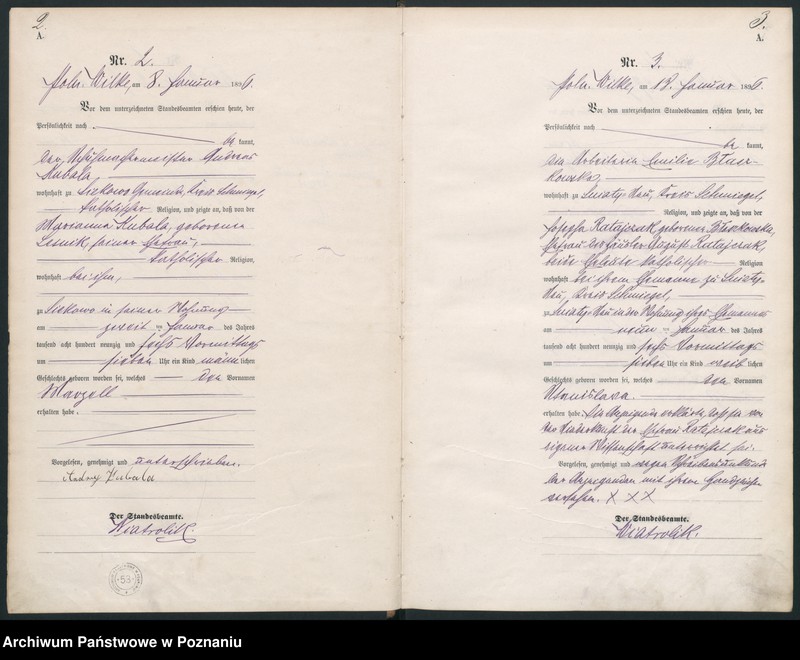 2.
A.
Nr. 2.
Poln. Wilke, am 8. Januar 1896.
Vor dem unterzeichneten Standesbeamten erschien heute, der
Persönlichkeit nach
be kannt,
der Andreas
Kubala,
wohnhaft zu Kreis Schmiegel,
katholischer Religion, und zeigte an, daß von der
Marianna Kubala, geborenen
seiner Ehefrau,
katholischer Religion,
wohnhaft bei ihm,
zu in seiner Wohnung
am zweiten Januar des Jahres
tausend acht hundert neunzig und sechs Vormittags
um sieben Uhr ein Kind männlichen
Geschlechts geboren worden sei, welches den Vornamen
erhalten habe.
Vorgelesen, genehmigt und unterschrieben.
Andrzej Kubala
Der Standesbeamte.
Wiatrolik.
53
3.
A.
Nr. 3.
Poln. Wilke, am 13. Januar 1896.
Vor dem unterzeichneten Standesbeamten erschien heute, der
Persönlichkeit nach
be kannt,
die Arbeiterin Emilie
wohnhaft zu Kreis Schmiegel,
Religion, und zeigte an, daß von der
Josepha Ratajczak geborenen
Ehefrau des August Ratajczak,
beide katholischer Religion
wohnhaft bei ihrem Ehemanne zu
Kreis Schmiegel,
zu in der Wohnung ihres Ehemannes
am neunten Januar des Jahres
tausend acht hundert neunzig und sechs Vormittags
um sieben Uhr ein Kind weiblichen
Geschlechts geboren worden sei, welches den Vornamen
Stanislawa
erhalten habe. Die erklärte, daß sie von
der Niederkunft der Ehefrau Ratajczak aus
eigener Wissenschaft unterrichtet sei.
Vorgelesen, genehmigt und wegen
der mit ihrem Handzeichen
versehen. X X X
Der Standesbeamte.
Wiatrolik.
Archiwum Państwowe w Poznaniu